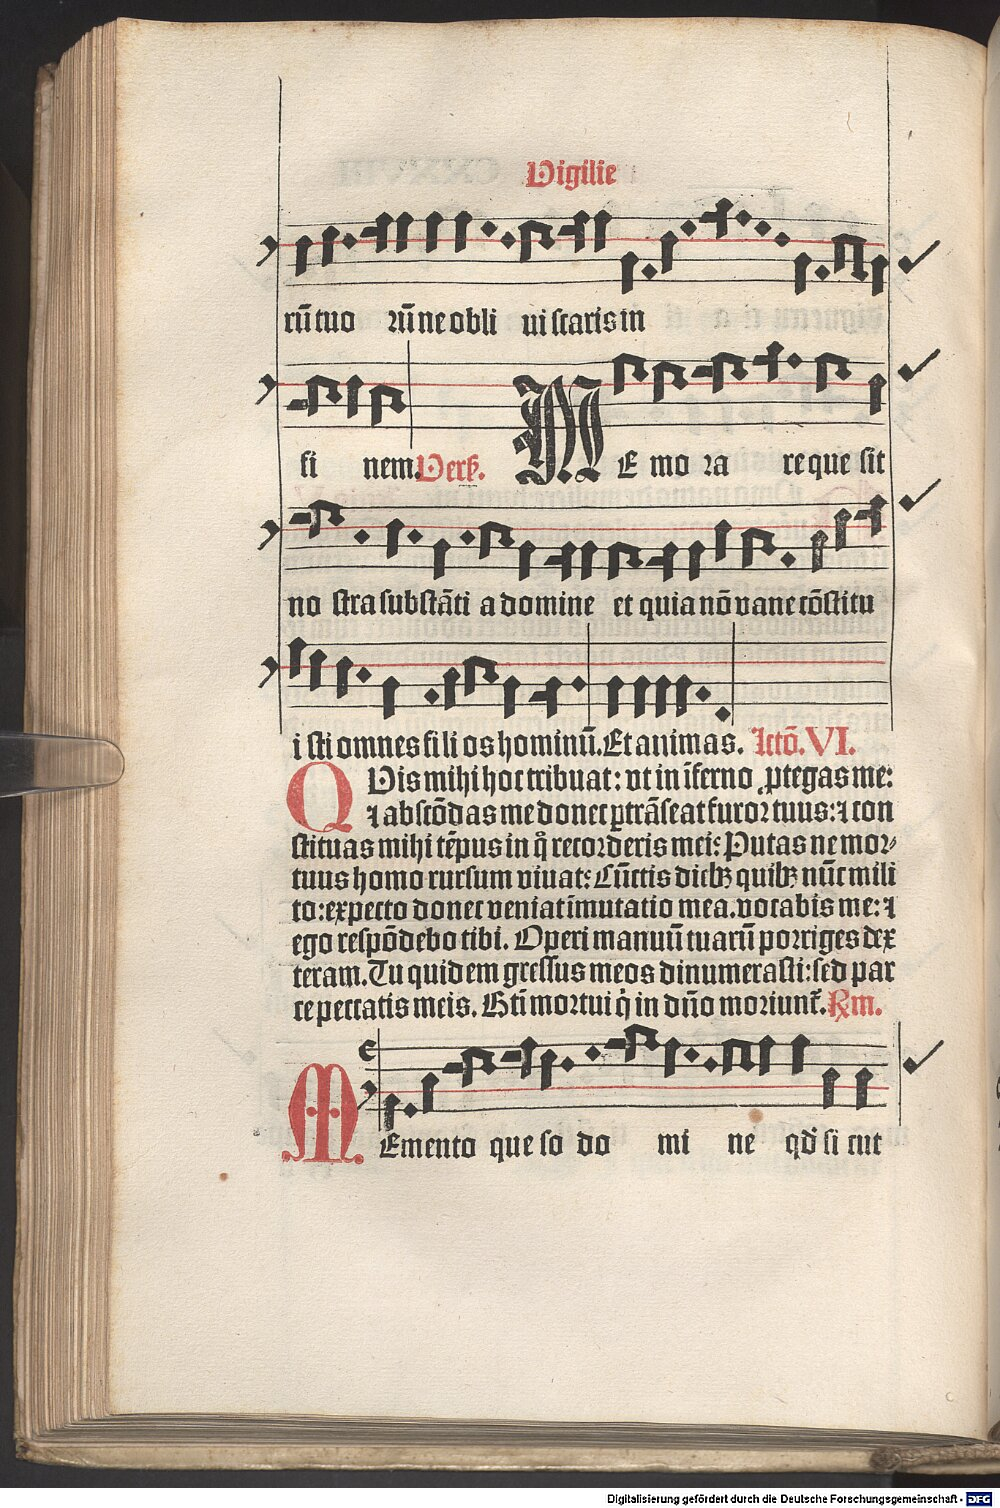 Vigilie
rū tuo rū ne obli ui scaris in
fi nem. Vers.
ME mo ra re que sit
no stra substāti a domine et quia nō vane cōstitu
i sti omnes fi li os hominū. Et animas. Lctō. VI.
QVis mihi hoc tribuat: vt in īferno ꝓtegas me:
⁊ abscōdas me donec ꝑtrāseat furor tuus: ⁊ con
stituas mihi tēpus in q̊ recorderis mei: Putas ne mor⸗
tuus homo rursum viuat: Cūctis diebꝫ quibꝫ nūc mili
to: expecto donec veniat īmutatio mea. vocabis me: ⁊
ego respōdebo tibi. Operi manuū tuarū porriges dex
teram. Tu quidem gressus meos dinumerasti: sed par
ce peccatis meis. Btī mortui q̇ in dn̄o moriunt᷑. Rm.
MEmento que so do mi ne qd si cut
Digitalisierung gefördert durch die Deutsche Forschungsgemeinschaft - DFG